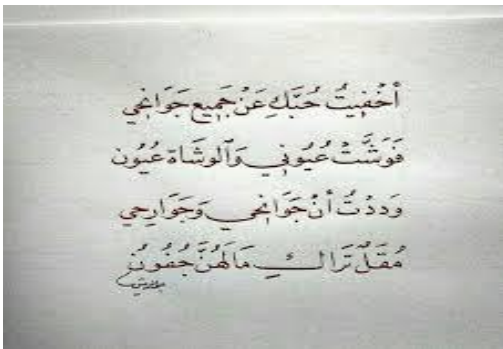 أَخْفَيْتُ حُبَّكِ عَنْ جَمِيعِ جَوَانِحِي
فَوَشَتْ عُيُونِي وَالْوُشَاةُ عُيُون
وَدِدْتُ أَنْ جَوَانِحِي وَجَوَارِحِي
مُقَلٌ تَرَاكِ مَا لَهُنَّ جُفُونُ